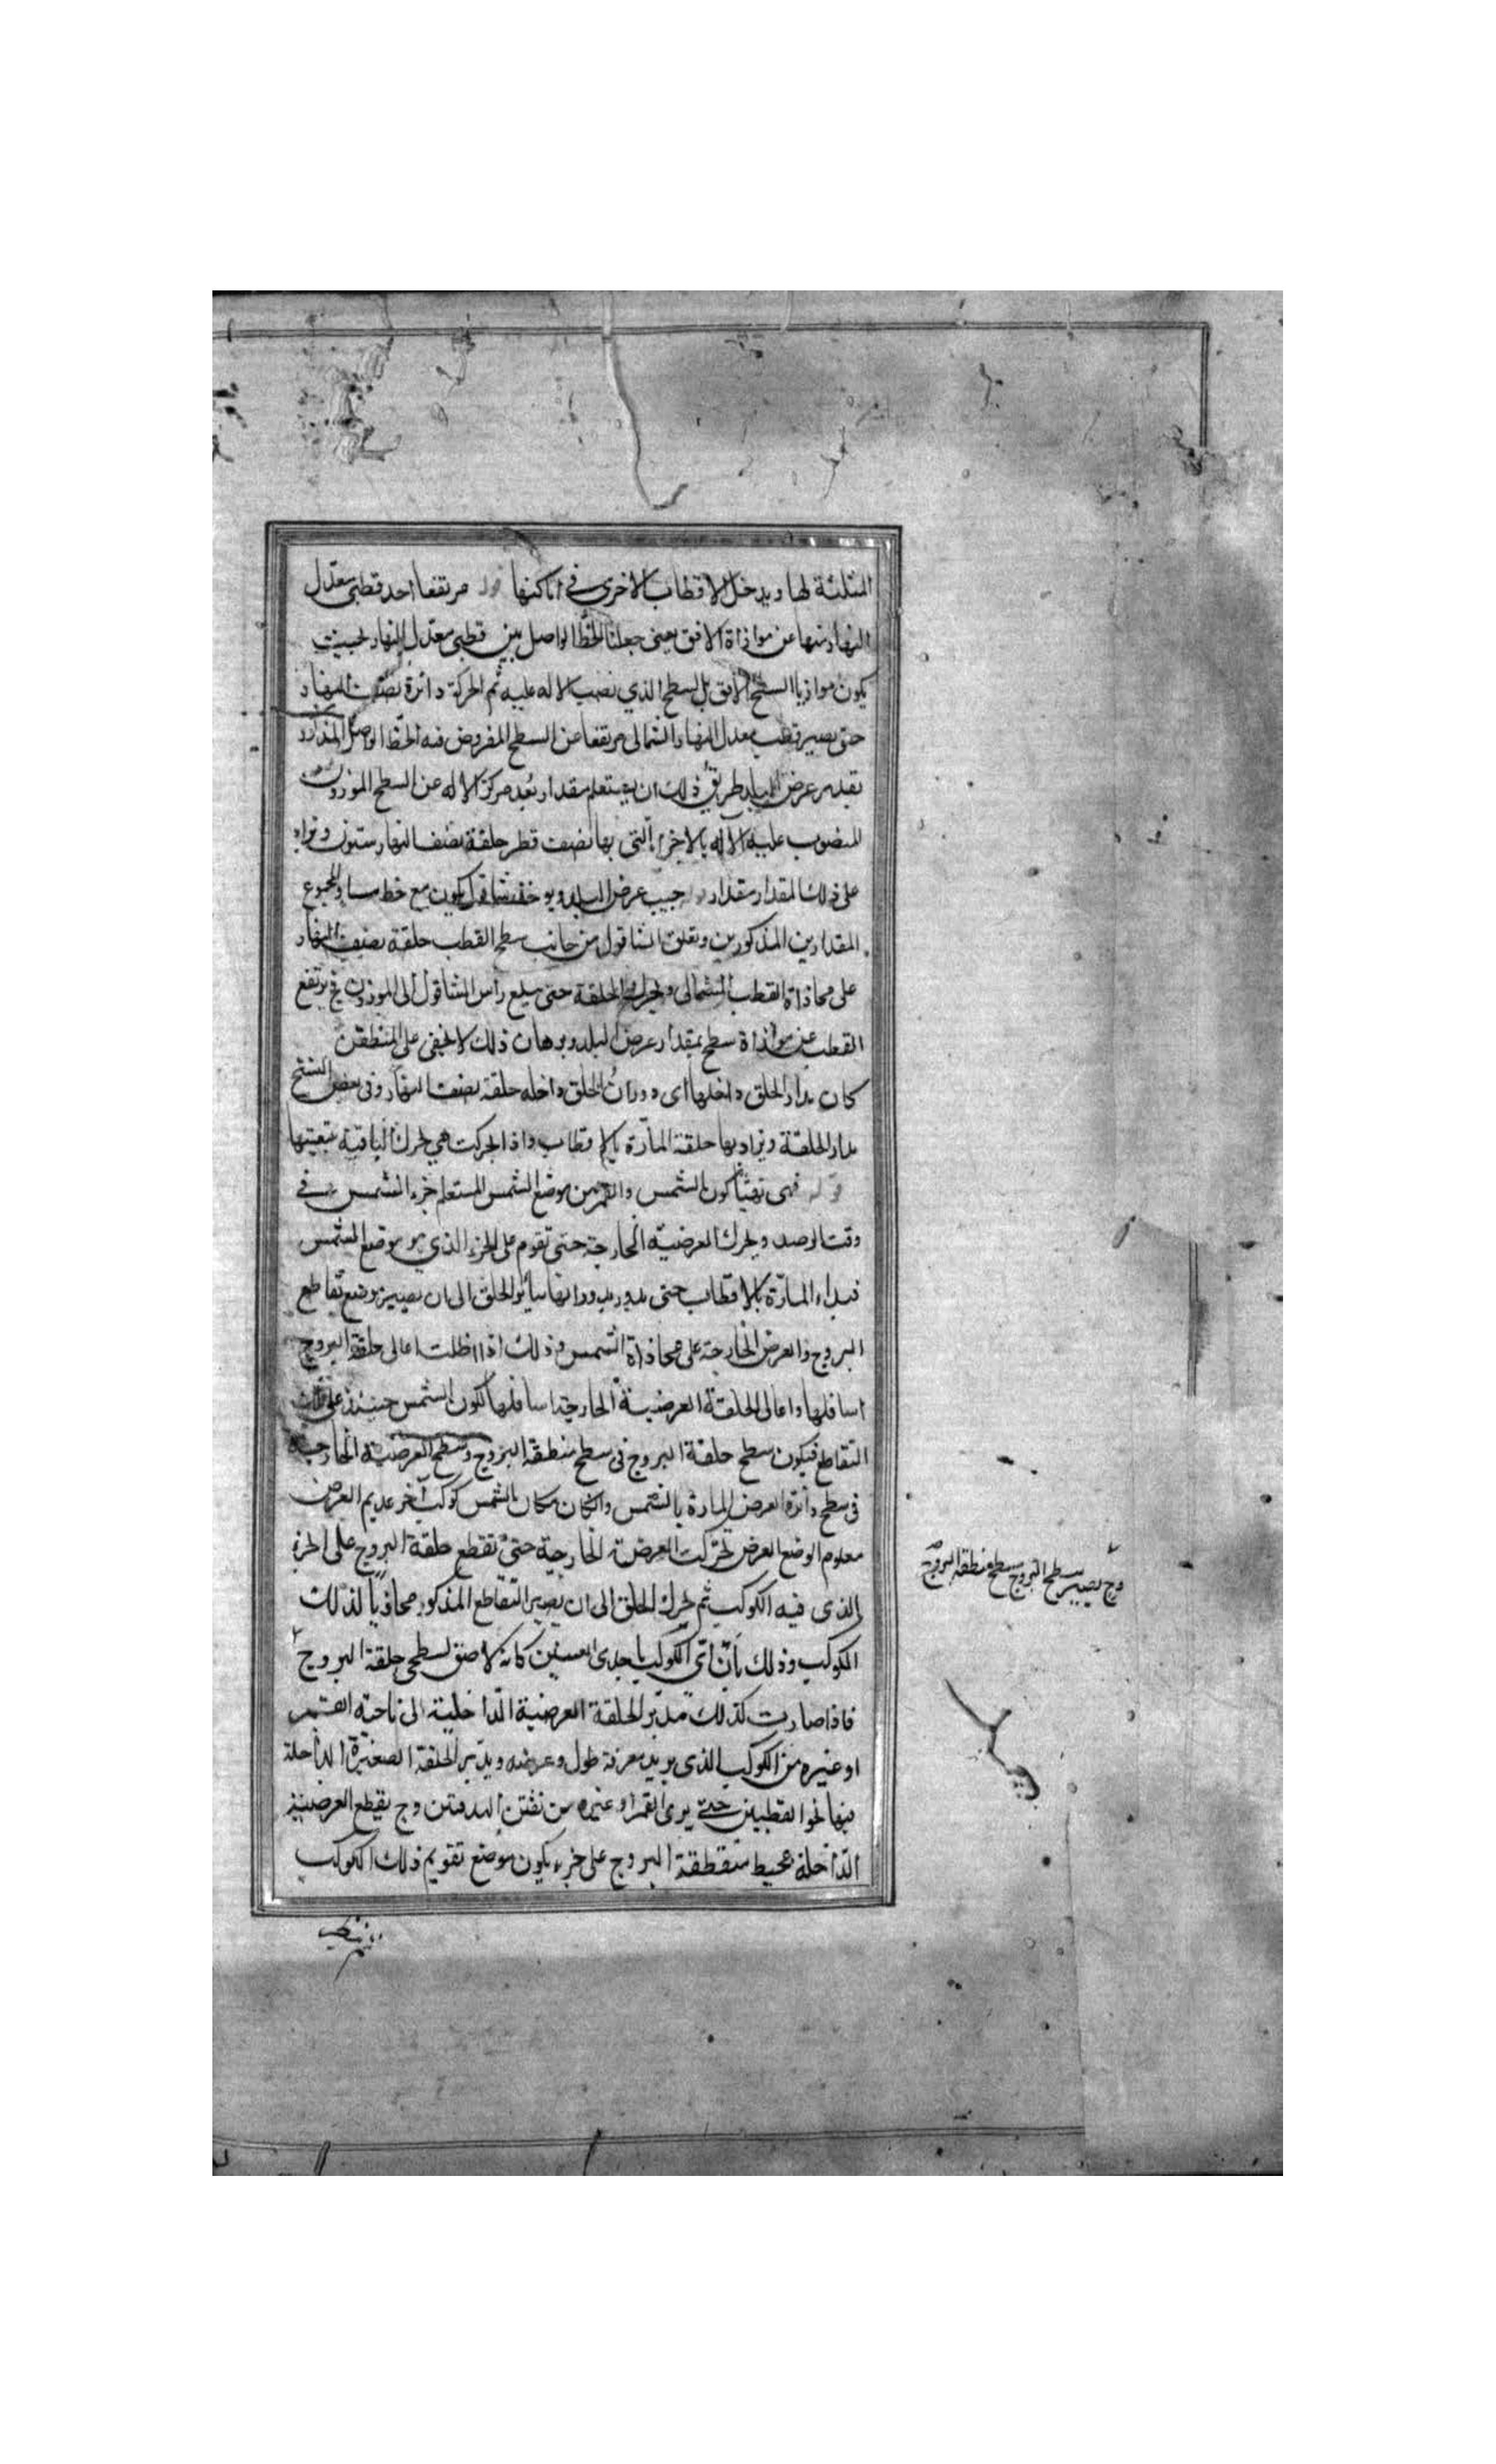 المثلثة لها ويدخل الاقطاب الاخرى في اماكنها قوله مرتفعا احد قطبي معدل
النهار منها عن موازاة الافق يعنى جعلنا الخط الواصل بين قطبي معدل النهار بحيث
يكون موازيا السطح الافق بل السطح الذي نصب الاله عليه ثم الحركة دائرة نصف النهار
حتى يصير قطب معدل النهار الشمالى مرتفعا عن السطح المفروض فيه الخط الواصل
بقدر عرض البلد طريق ذلك ان يستعلم مقدار بُعد مركز الاله عن السطح الموزون
المنصوب عليه الاله بالاجزا التى بها نصف قطر حلقة نصف النهار ستون ونزاد
على ذلك المقدار مقدار جيب عرض البلد ويوخذ شاقول يكون مع خط مساو لمجموع
المقدارين المذكورين ونعلق الشاقول من جانب سطح القطب حلقة نصف النهار
على محاذاة القطب الشمالى ويحرك الحلقة حتى يبلغ رأس الشاقول الى الموزون فح يرتفع
القطب عن موازاة سطح بمقدار عرض البلد وبرهان ذلك لا يخفى على المتطفن
كان مدار الحلق داخلها اى دورانُ الحلق داخله حلقة نصف النهار وفى بعض النسخ
مدار الحلقة ويراد بها حلقة المارّة بالاقطاب واذا تحركت هي تحرك الباقية بتبعيتها
قوله فهى تهيّأ كون الشمس والقمر من موضع الشمس المستعلم جزء الشمس في
وقت الرصد ويحرك العرضية الخارجة حتى تقوم على الجزء الذي هو موضع الشمس
فيداء المارّة بالاقطاب حتى يدور بدورانها سائر الحلق الى ان يصير موضع تقاطع
البروج والعرض الخارجة على محاذاة الشمس وذلك اذا اظلت اعالى حلقة البروج
اسافلها واعالى الحلقة العرضية الخارجة اسافلها لكون الشمس حينئذ على ذلك
التقاطع فيكون سطح حلقة البروج فى سطح منطقة البروج وسطح العرضية الخارجة
فى سطح دائرة العرض المارة بالشمس وان كان مكان الشمس كوكب آخر عديم العرض
معلوم الوضع العرض تحركت العرضة الخارجية حتى تقطع حلقة البروج على الجزء
الذى فيه الكوكب ثم يحرك الحلق الى ان يصير التقاطع المذكور محاذياً لذلك
الكوكب وذلك بأن أى الكوكب باحدى العينين كانه لاصق لسطحى حلقة البروج
فاذا صارت كذلك مدبر الحلقة العرضية الداخلية الى ناحته القمر
او غيره من الكوكب الذى يريد معرفة طول وعرضه ويدير الحلقة الصغيرة الداخلة
فيها نحو القطبين حتى يرى القمر او غيره من ثقبتى الهدفتين وح يقطع العرضية
الداخلة محيط منقطقة البروج على جزء يكون موضع تقويم ذلك الكوكب
وح يصير سطح البروج سطح منطقة البروج